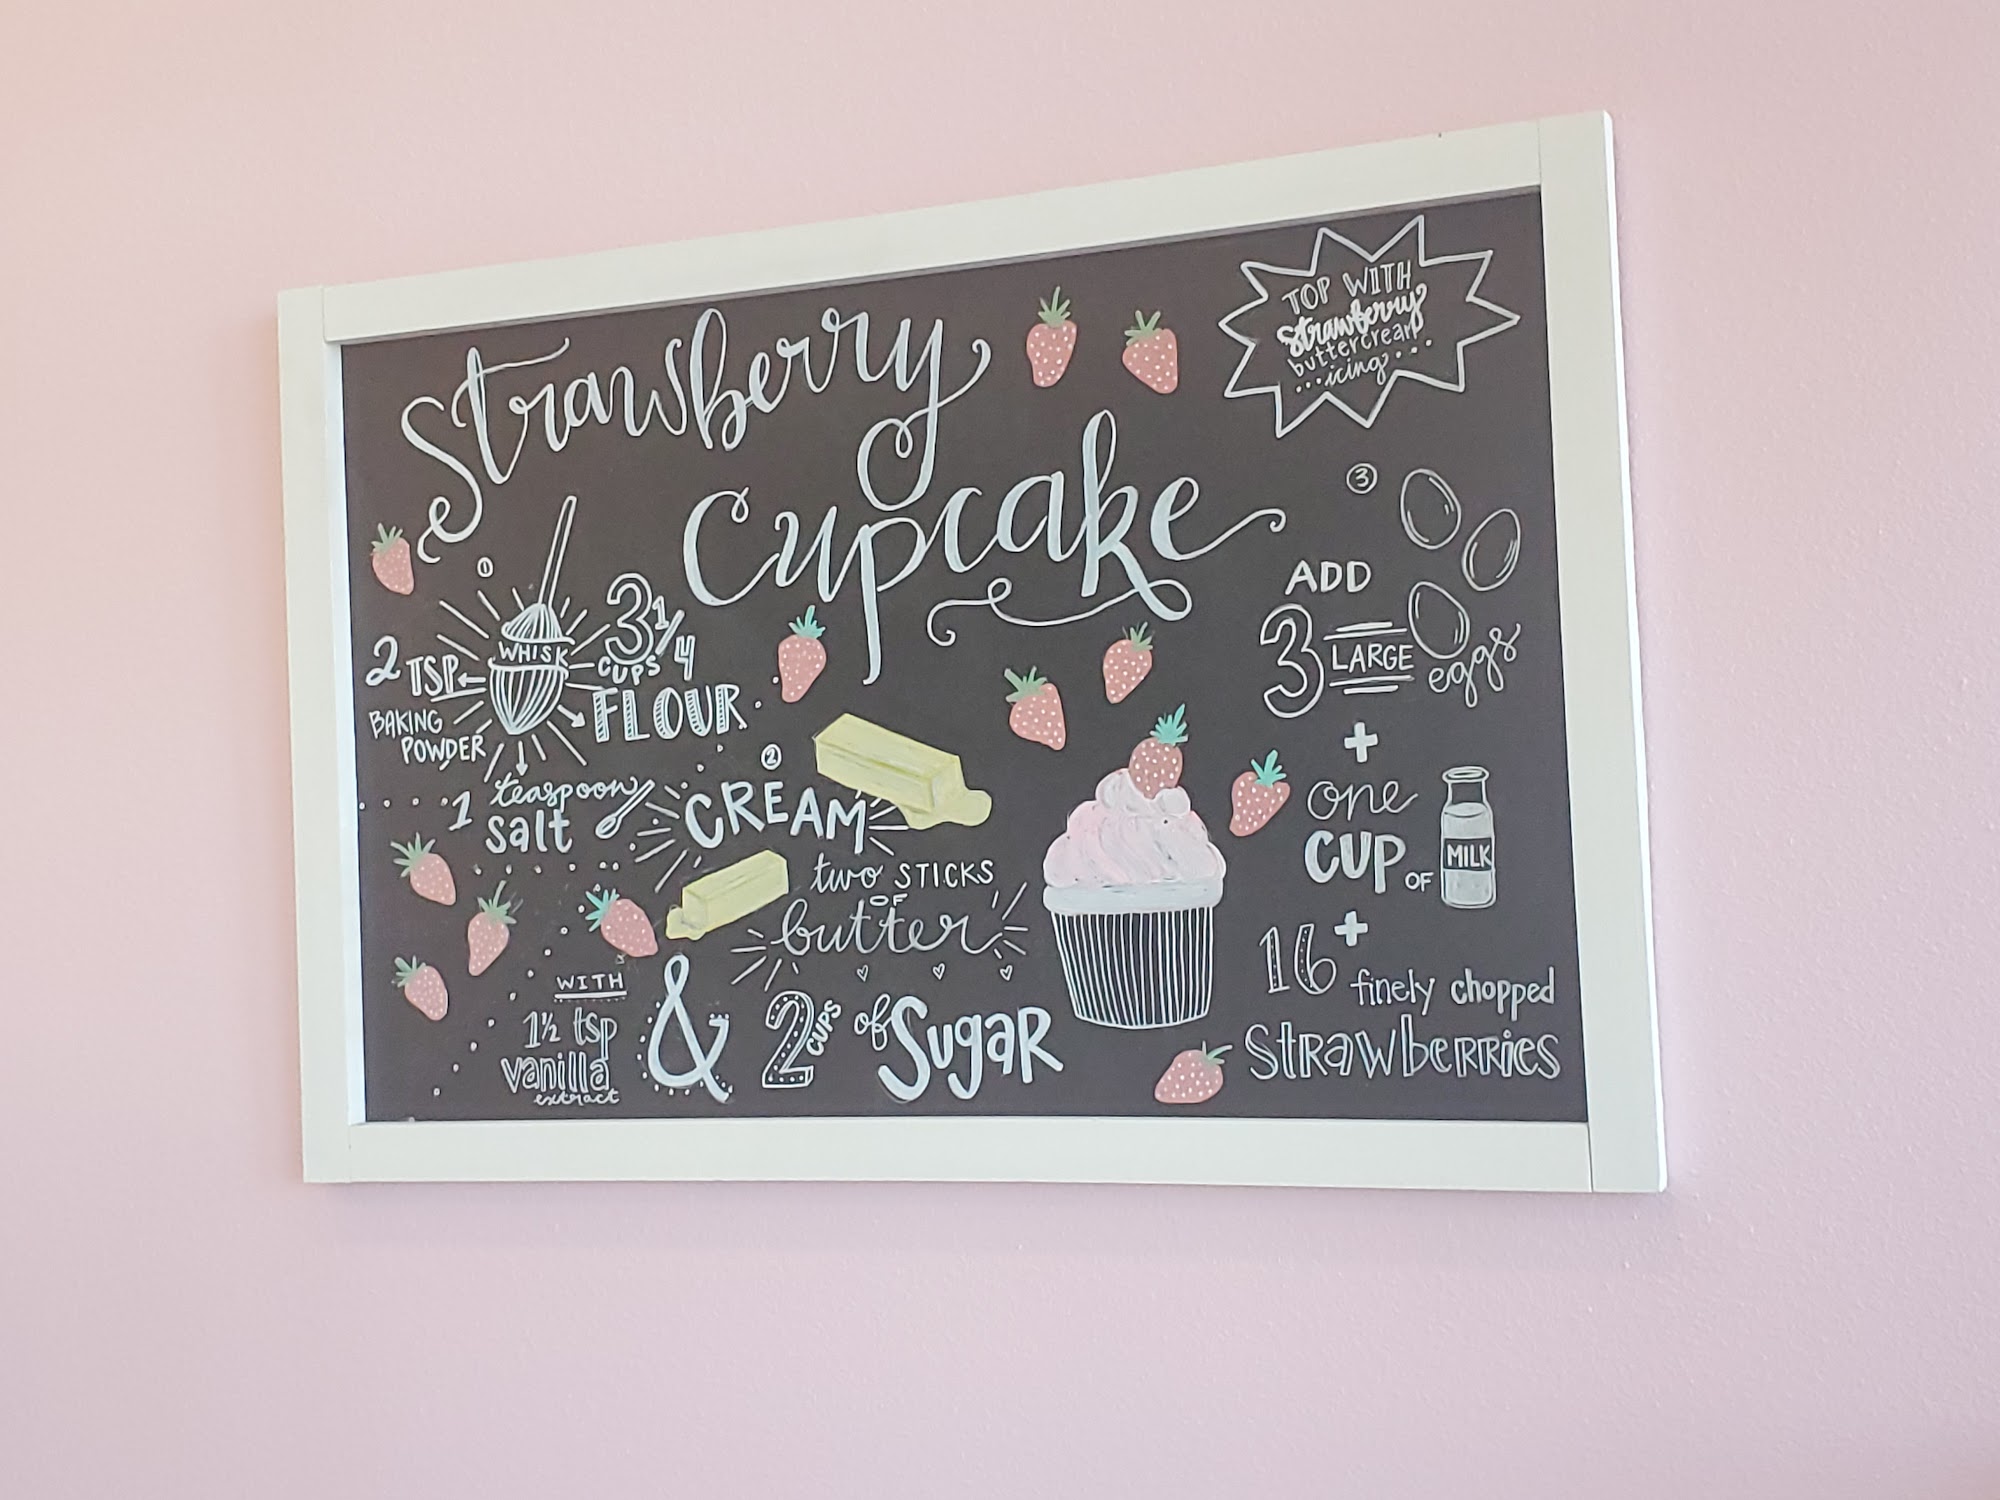 Strawberry
Cupcake
TOP WITH
Strawberry
buttercream
...icing...
1
WHISK
2 TSP
BAKING
POWDER
3 1/4
CUPS
FLOUR
1 teaspoon
salt
2
CREAM
two STICKS
OF
butter
WITH
1½ tsp
vanilla
extract
& 2 CUPS of Sugar
3
ADD
3 LARGE eggs
+
one
CUP OF MILK
+
16 finely chopped
Strawberries